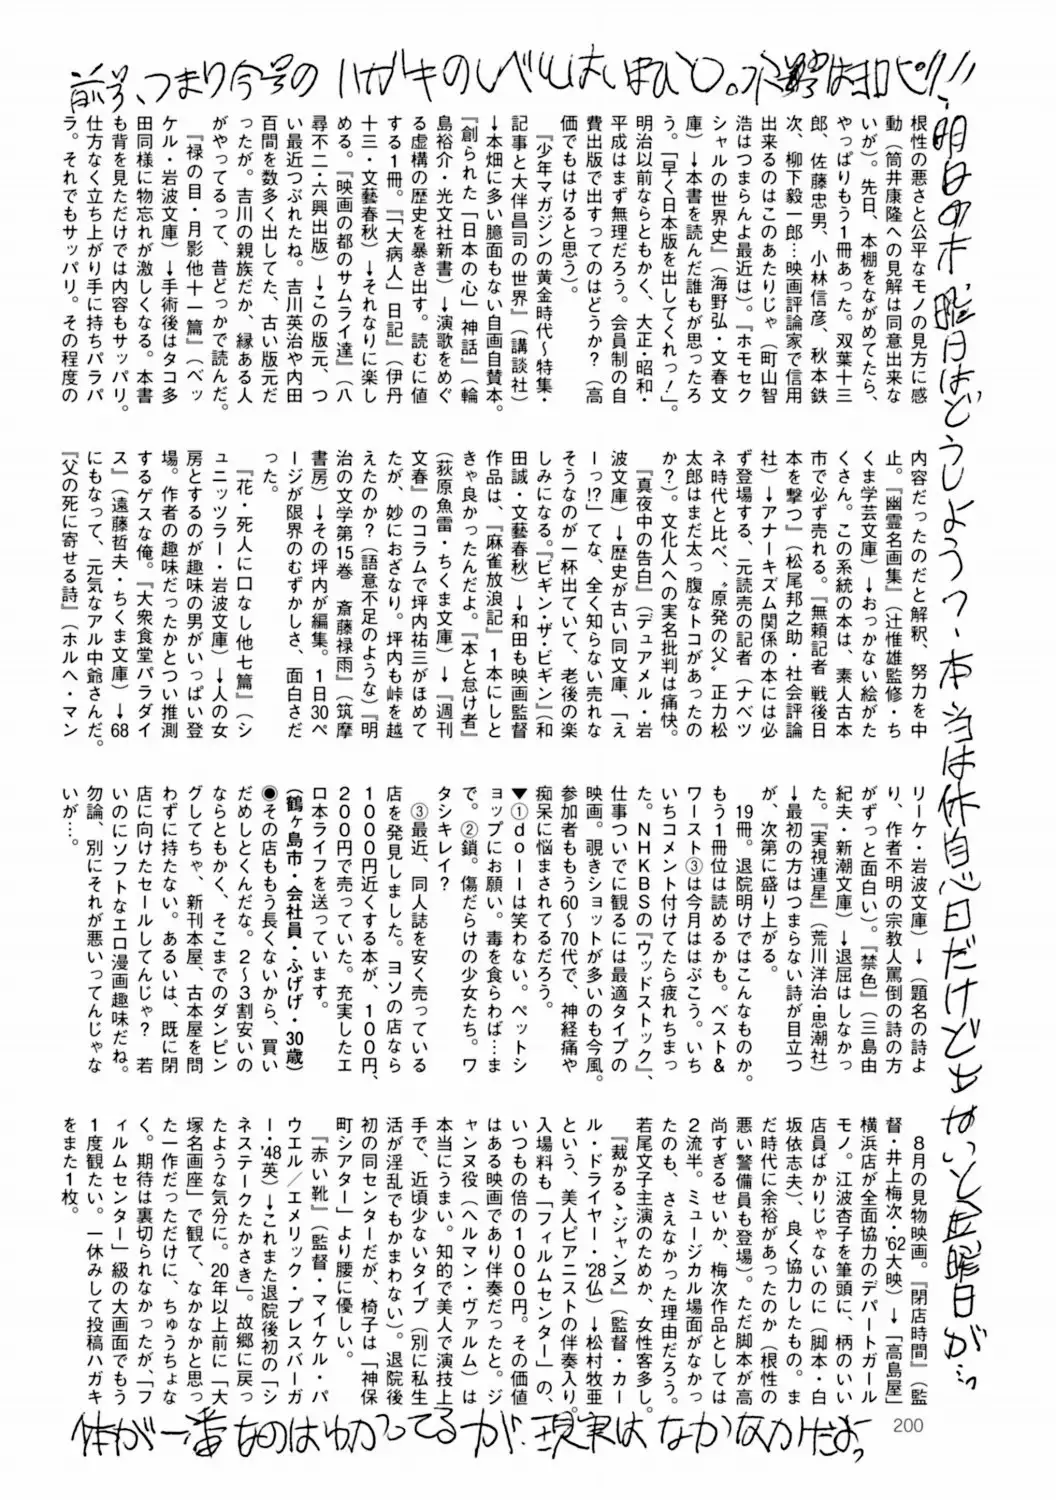 前号、つまり今号のハガキのレベルはいまひと。水野はヨロピリ!!
根性の悪さと公平なモノの見方に感
動(筒井康隆への見解は同意出来な
いが)。先日、本棚をながめてたら、
やっぱりもう1冊あった。双葉十三
郎、佐藤忠男、小林信彦、秋本鉄
次、柳下毅一郎…映画評論家で信用
出来るのはこのあたりじゃ(町山智
浩はつまらんよ最近は)。『ホモセク
シャルの世界史』(海野弘・文春文
庫)→本書を読んだ誰もが思ったろ
う。「早く日本版を出してくれっ!」。
明治以前ならともかく、大正・昭和・
平成はまず無理だろう。会員制の自
費出版で出すってのはどうか?(高
価でもはけると思う)。
『少年マガジンの黄金時代〜特集・
記事と大伴昌司の世界』(講談社)
→本畑に多い臆面もない自画自賛本。
『創られた「日本の心」神話』(輪
島裕介・光文社新書)→演歌をめぐ
る虚構の歴史を暴き出す。読むに値
する1冊。『「大病人」日記』(伊丹
十三・文藝春秋)→それなりに楽し
める。『映画の都のサムライ達』(八
尋不二・六興出版)→この版元、つ
い最近つぶれたね。吉川英治や内田
百間を数多く出してた、古い版元だ
ったが。吉川の親族だか、縁ある人
がやってるって、昔どっかで読んだ。
『禄の目・月影他十一篇』(ベッ
ケル・岩波文庫)→手術後はタコ多
田同様に物忘れが激しくなる。本書
も背を見ただけでは内容もサッパリ。
仕方なく立ち上がり手に持ちパラパ
ラ。それでもサッパリ。その程度の
内容だったのだと解釈、努力を中
止。『幽霊名画集』(辻惟雄監修・ち
くま学芸文庫)→おっかない絵がた
くさん。この系統の本は、素人古本
市で必ず売れる。『無頼記者 戦後日
本を撃つ』(松尾邦之助・社会評論
社)→アナーキズム関係の本には必
ず登場する、元読売の記者(ナベツ
ネ時代と比べ、〝原発の父〟正力松
太郎はまだ太っ腹なトコがあったの
か?)。文化人への実名批判は痛快。
『真夜中の告白』(デュアメル・岩
波文庫)→歴史が古い同文庫、「え
ーっ!?」てな、全く知らない売れな
そうなのが一杯出ていて、老後の楽
しみになる。『ビギン・ザ・ビギン』(和
田誠・文藝春秋)→和田も映画監督
作品は、『麻雀放浪記』1本にしと
きゃ良かったんだよ。『本と怠け者』
(荻原魚雷・ちくま文庫)→『週刊
文春』のコラムで坪内祐三がほめて
たが、妙におざなり。坪内も峠を越
えたのか?(語意不足のような)『明
治の文学第15巻 斎藤禄雨』(筑摩
書房)→その坪内が編集。1日30ペ
ージが限界のむずかしさ、面白さだ
った。
『花・死人に口なし他七篇』(シ
ュニッツラー・岩波文庫)→人の女
房とするのが趣味の男がいっぱい登
場。作者の趣味だったかとつい推測
するゲスな俺。『大衆食堂パラダイ
ス』(遠藤哲夫・ちくま文庫)→68
にもなって、元気なアル中爺さんだ。
『父の死に寄せる詩』(ホルヘ・マン
リーケ・岩波文庫)→(題名の詩よ
り、作者不明の宗教人罵倒の詩の方
がずっと面白い)。『禁色』(三島由
紀夫・新潮文庫)→退屈はしなかっ
た。『実視連星』(荒川洋治・思潮社)
→最初の方はつまらない詩が目立つ
が、次第に盛り上がる。
19冊。退院明けではこんなものか。
もう1冊位は読めるかも。ベスト&
ワースト③は今月ははぶこう。いち
いちコメント付けてたら疲れちまっ
た。NHKBSの『ウッドストック』、
仕事ついでに観るには最適タイプの
映画。覗きショットが多いのも今風。
参加者ももう60〜70代で、神経痛や
痴呆に悩まされてるだろう。
▼①dollは笑わない。ペットシ
ョップにお願い。毒を食らわば…ま
で。②鎖。傷だらけの少女たち。ワ
タシキレイ?
③最近、同人誌を安く売っている
店を発見しました。ヨソの店なら
1000円近くする本が、100円、
200円で売っていた。充実したエ
ロ本ライフを送っています。
(鶴ヶ島市・会社員・ふげげ・30歳)
◉その店ももう長くないから、買い
だめしとくんだな。2〜3割安いの
ならともかく、そこまでのダンピン
グしてちゃ、新刊本屋、古本屋を問
わずに持たない。あるいは、既に閉
店に向けたセールしてんじゃ? 若
いのにソフトなエロ漫画趣味だね。
勿論、別にそれが悪いってんじゃな
いが…。
8月の見物映画。『閉店時間』(監
督・井上梅次・'62大映)→「高島屋」
横浜店が全面協力のデパートガール
モノ。江波杏子を筆頭に、柄のいい
店員ばかりじゃないのに(脚本・白
坂依志夫)、良く協力したもの。ま
だ時代に余裕があったのか(根性の
悪い警備員も登場)。ただ脚本が高
尚すぎるせいか、梅次作品としては
2流半。ミュージカル場面がなかっ
たのも、さえなかった理由だろう。
若尾文子主演のためか、女性客多し。
『裁かるゝジャンヌ』(監督・カー
ル・ドライヤー・'28仏)→松村牧亜
という、美人ピアニストの伴奏入り。
入場料も「フィルムセンター」の、
いつもの倍の1000円。その価値
はある映画であり伴奏だったと。ジ
ャンヌ役(ヘルマン・ヴァルム)は
本当にうまい。知的で美人で演技上
手で、近頃少ないタイプ(別に私生
活が淫乱でもかまわない)。退院後
初の同センターだが、椅子は「神保
町シアター」より腰に優しい。
『赤い靴』(監督・マイケル・パ
ウエル/エメリック・プレスバーガ
ー・'48英)→これまた退院後初の「シ
ネステークたかさき」。故郷に戻っ
たような気分に。20年以上前に「大
塚名画座」で観て、なかなかと思っ
た一作だっただけに、ちゅうちょな
く。期待は裏切られなかったが、「フ
ィルムセンター」級の大画面でもう
1度観たい。一休みして投稿ハガキ
をまた1枚。
明日の木曜日はどうしようっ?本当は休息日だけどせいと金曜日が…。
体が一番なのはゆかってるが、現実はなかなかだよっ
200